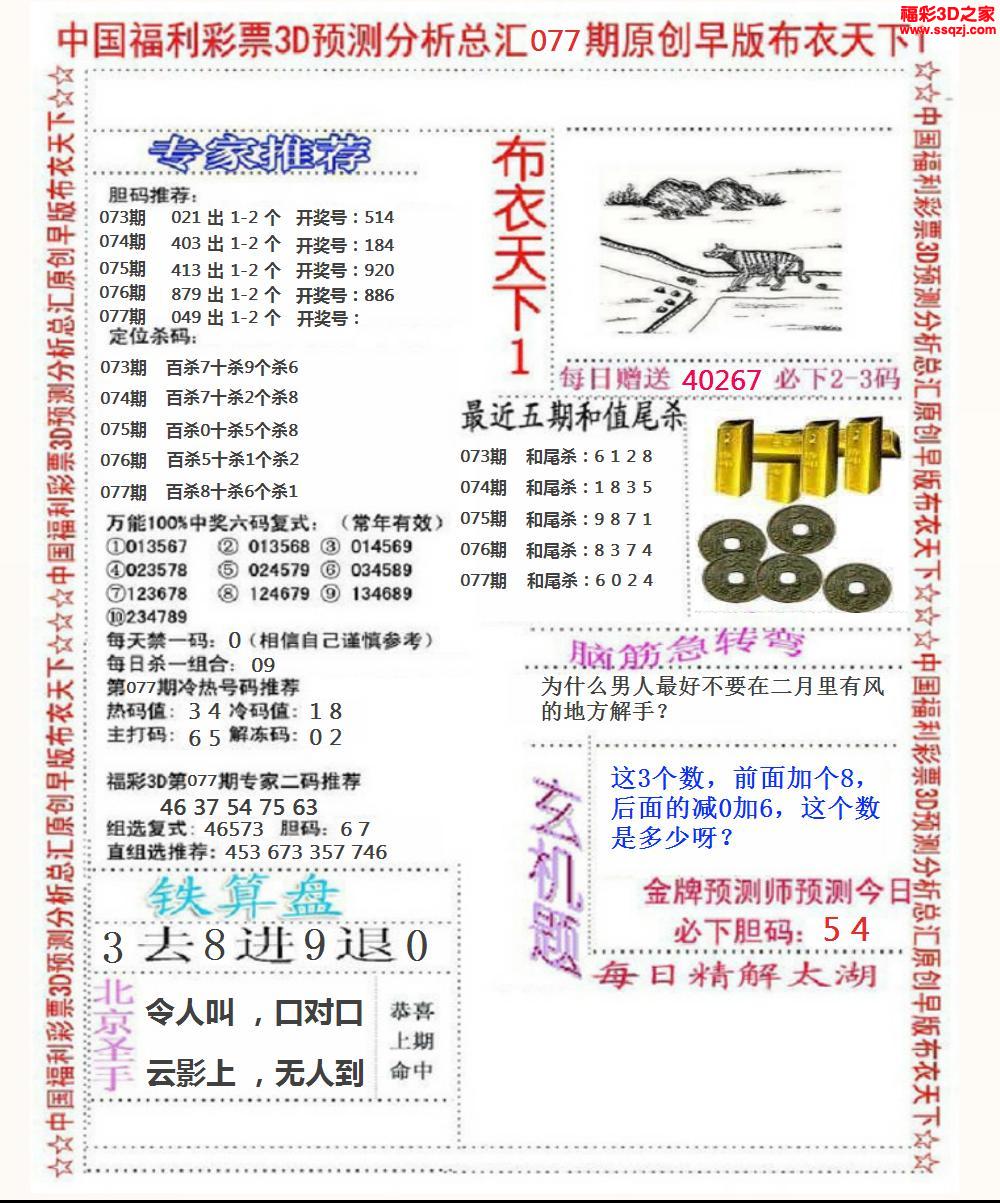 福彩3D之家
www.ssqzj.com
中国福利彩票3D预测分析总汇077期原创早版布衣天下1
☆☆中国福利彩票3D预测分析总汇原创早版布衣天下☆☆☆中国福利彩票3D预测分析总汇原创早版布衣天下☆☆
专家推荐
胆码推荐:
073期 021 出 1-2 个 开奖号:514
074期 403 出 1-2 个 开奖号:184
075期 413 出 1-2 个 开奖号:920
076期 879 出 1-2 个 开奖号:886
077期 049 出 1-2 个 开奖号:
定位杀码:
073期 百杀7十杀9个杀6
074期 百杀7十杀2个杀8
075期 百杀0十杀5个杀8
076期 百杀5十杀1个杀2
077期 百杀8十杀6个杀1
万能100%中奖六码复式:(常年有效)
①013567 ② 013568 ③ 014569
④023578 ⑤ 024579 ⑥ 034589
⑦123678 ⑧ 124679 ⑨ 134689
⑩234789
每天禁一码:0(相信自己谨慎参考)
每日杀一组合:09
第077期冷热号码推荐
热码值:3 4 冷码值:1 8
主打码:6 5 解冻码:0 2
福彩3D第077期专家二码推荐
46 37 54 75 63
组选复式:46573 胆码:6 7
直组选推荐:453 673 357 746
铁算盘
3去8进9退0
北京圣手
令人叫,口对口
云影上,无人到
恭喜
上期
命中
布衣天下1
每日赠送 40267 必下2-3码
最近五期和值尾杀
073期 和尾杀:6 1 2 8
074期 和尾杀:1 8 3 5
075期 和尾杀:9 8 7 1
076期 和尾杀:8 3 7 4
077期 和尾杀:6 0 2 4
脑筋急转弯
为什么男人最好不要在二月里有风
的地方解手?
玄机题
这3个数,前面加个8,
后面的减0加6,这个数
是多少呀?
金牌预测师预测今日
必下胆码:5 4
每日精解太湖
☆☆中国福利彩票3D预测分析总汇原创早版布衣天下☆☆☆中国福利彩票3D预测分析总汇原创早版布衣天下☆☆